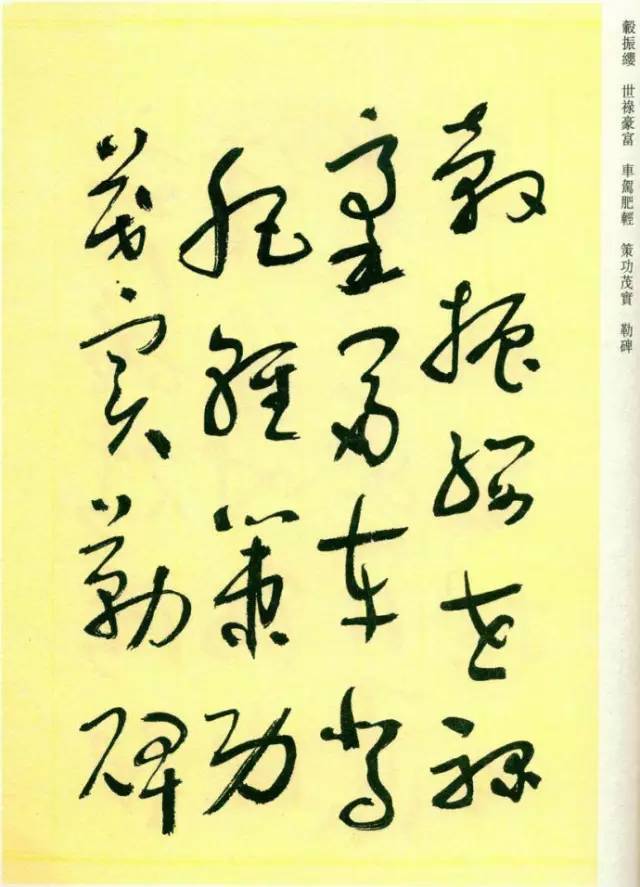 轂振纓　世祿豪富　車駕肥輕　策功茂實　勒碑
轂振纓世祿
豪富車駕
肥輕策功
茂實勒碑